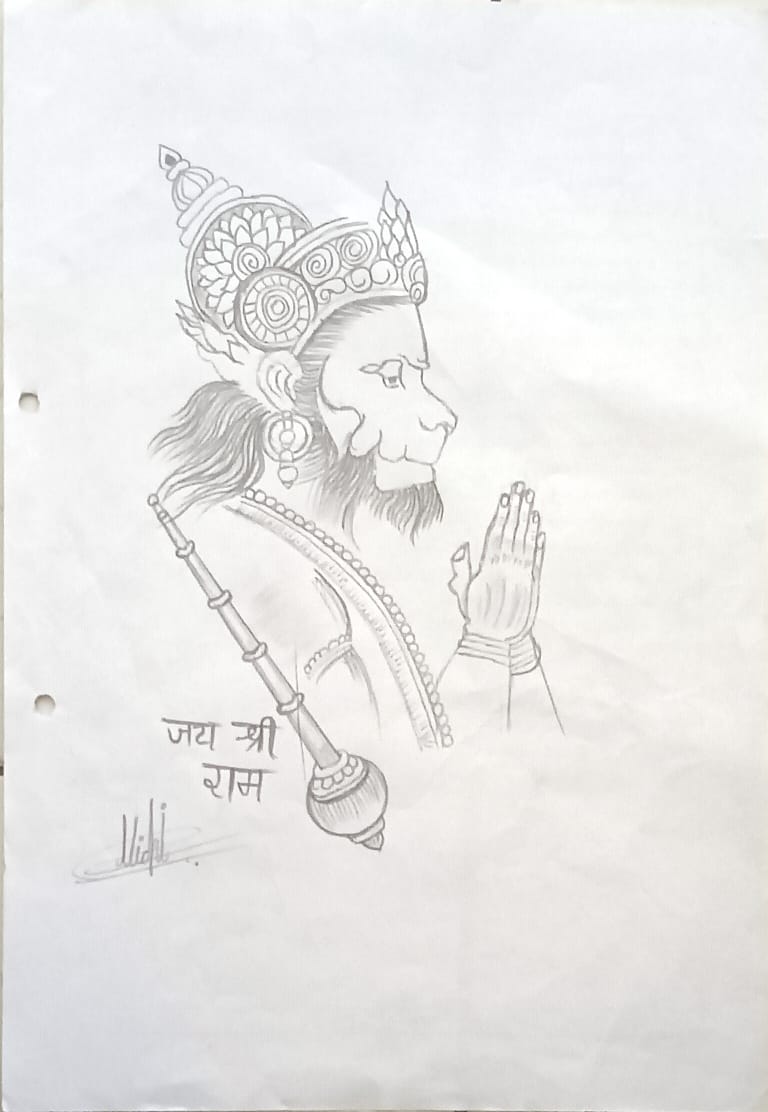 जय श्री
राम
Nidhi